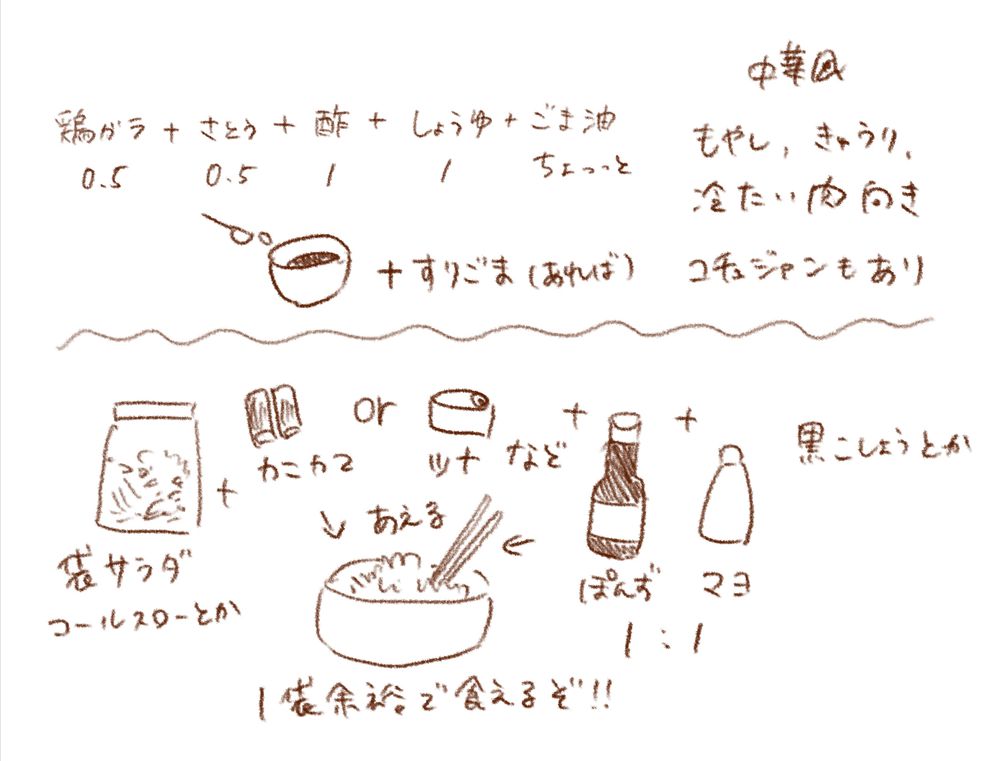 中華風
鶏ガラ + さとう + 酢 + しょうゆ + ごま油
0.5 0.5 1 1 ちょっっと
もやし, きゅうり,
冷たい肉向き
+ すりごま (あれば)
コチュジャンもあり
袋サラダ
コールスローとか
+
カニカマ
or
ツナ など
+
ぽんず
+
マヨ
1 : 1
黒こしょうとか
↓ あえる ←
1袋余裕で食えるぞ!!